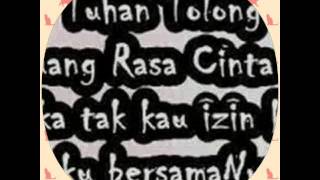 Tuhan Tolong
ang Rasa Cinta
ka tak kau îzîn
ku bersamaN